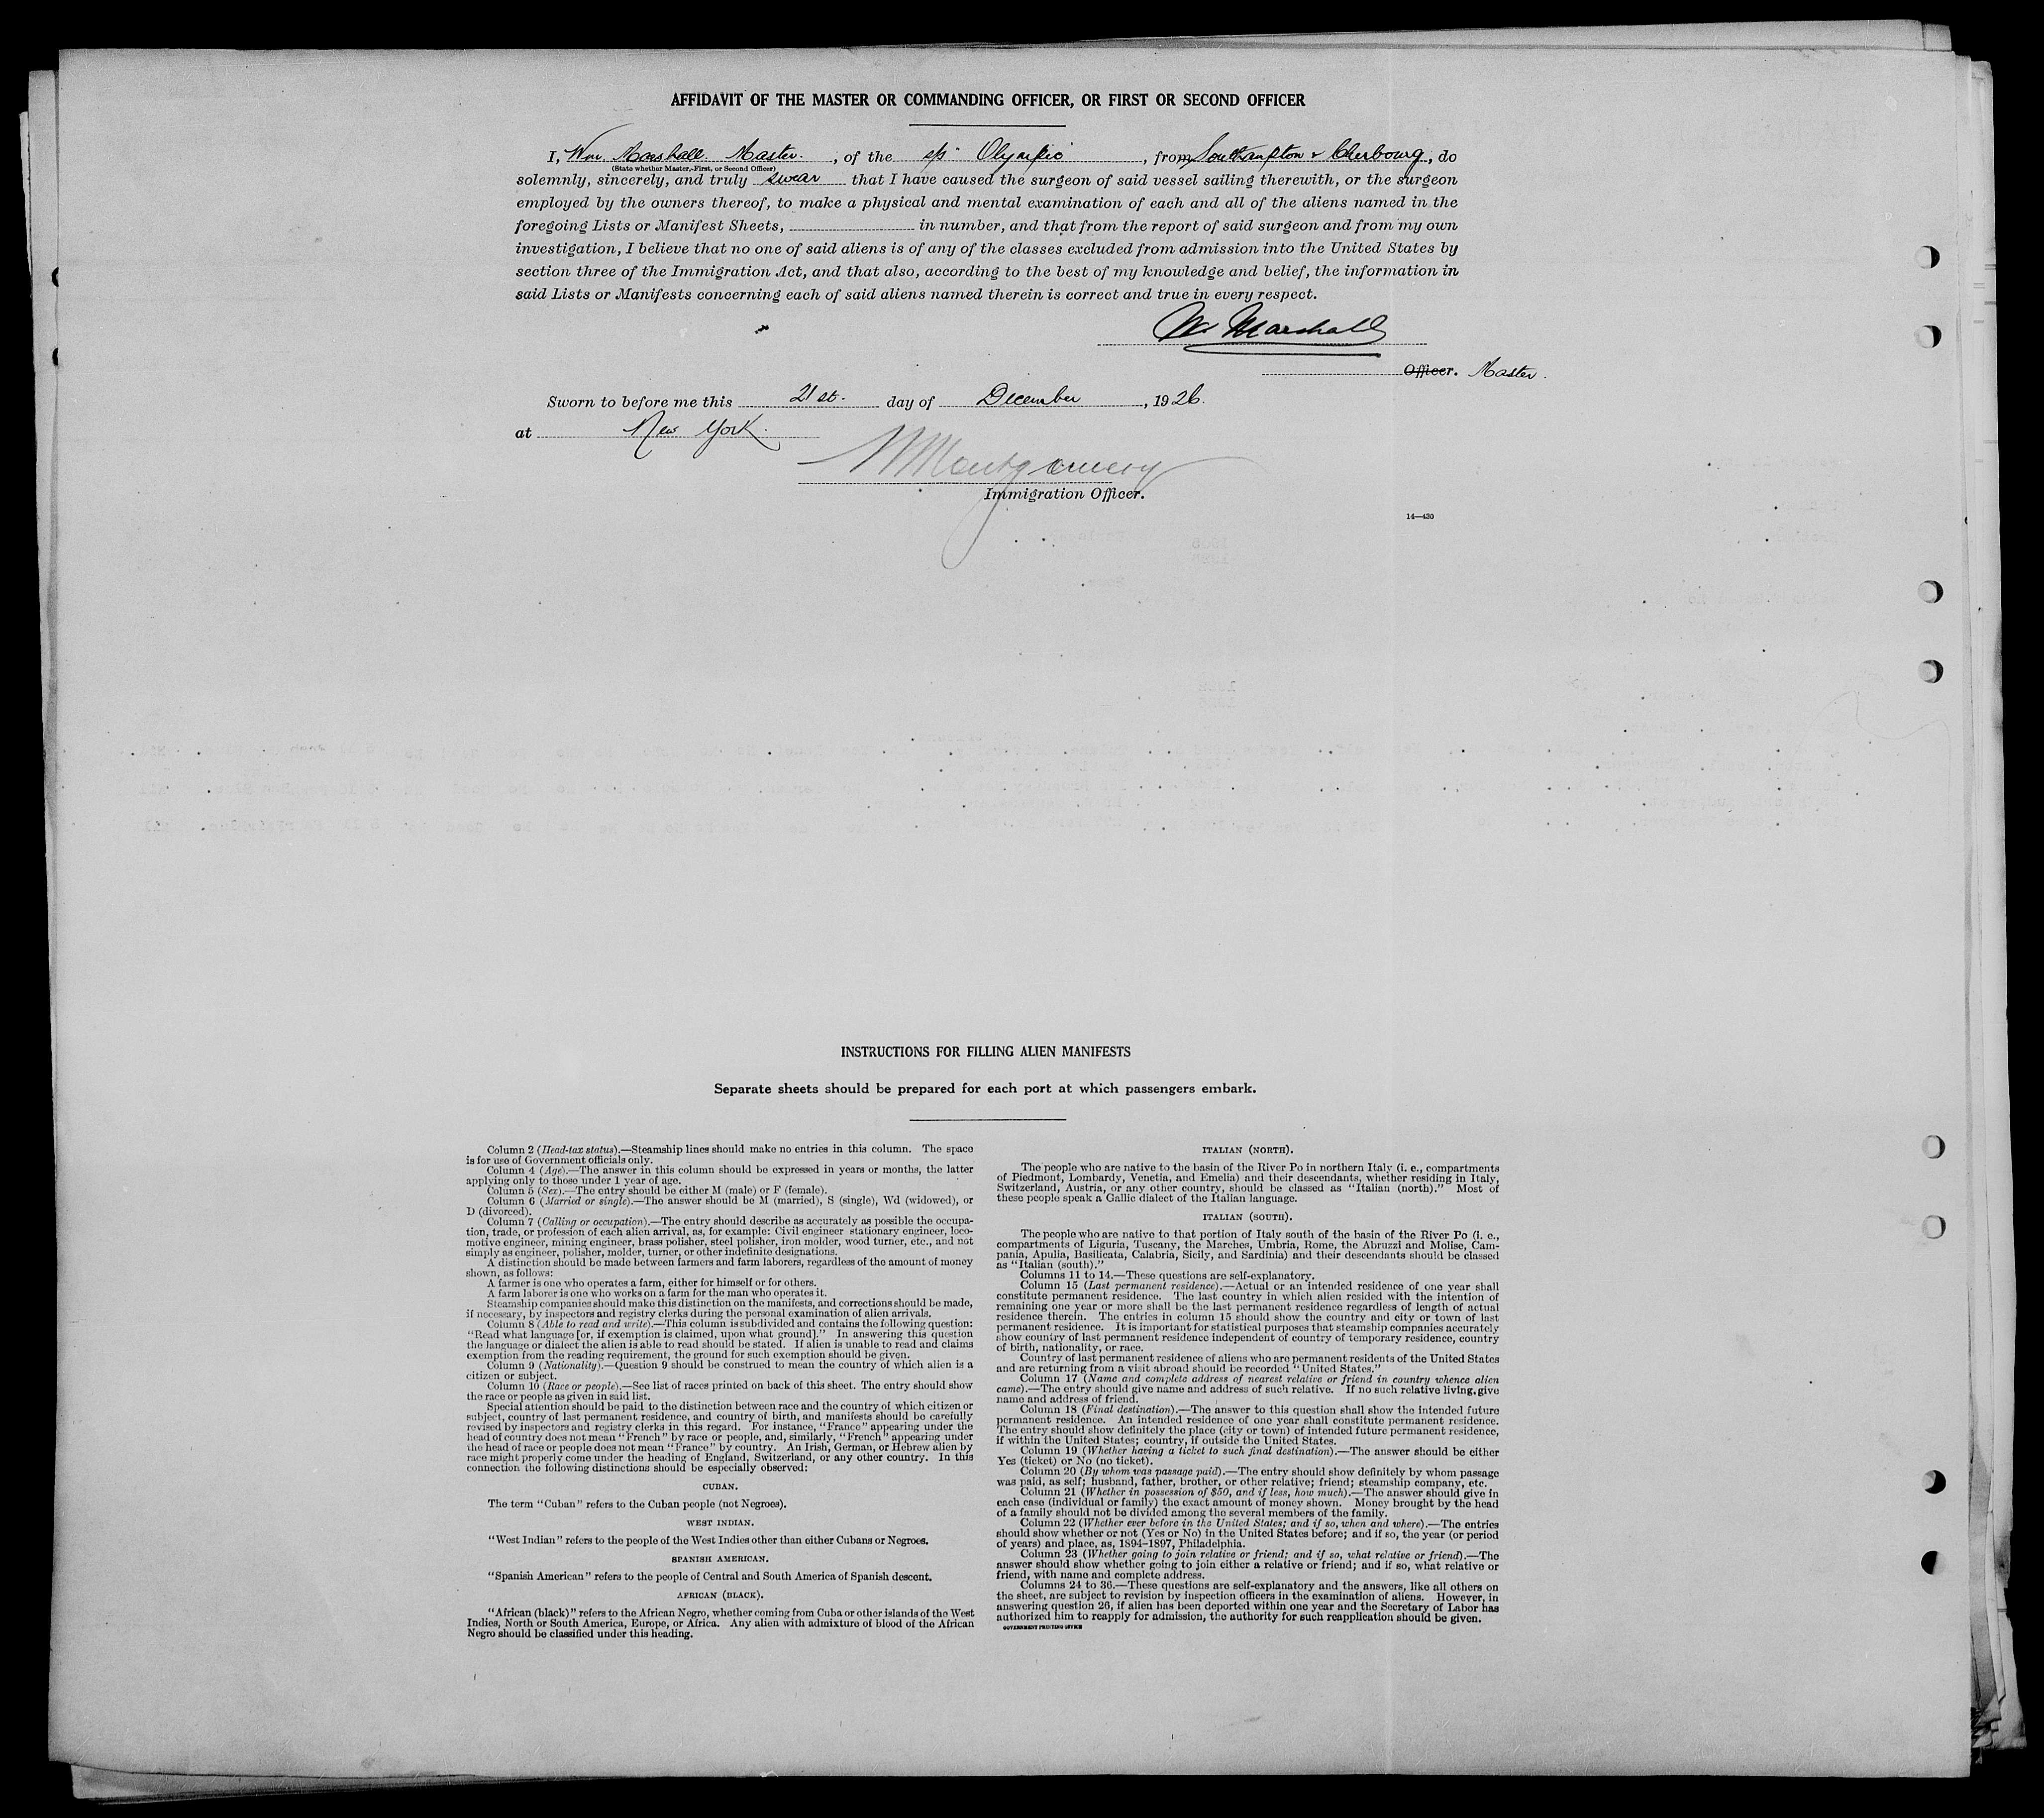 AFFIDAVIT OF THE MASTER OR COMMANDING OFFICER, OR FIRST OR SECOND OFFICER
I, Wm. Marshall. Master. , of the s/s Olympic , from Southampton & Cherbourg, do
(State whether Master, First, or Second Officer)
solemnly, sincerely, and truly swear that I have caused the surgeon of said vessel sailing therewith, or the surgeon
employed by the owners thereof, to make a physical and mental examination of each and all of the aliens named in the
foregoing Lists or Manifest Sheets, in number, and that from the report of said surgeon and from my own
investigation, I believe that no one of said aliens is of any of the classes excluded from admission into the United States by
section three of the Immigration Act, and that also, according to the best of my knowledge and belief, the information in
said Lists or Manifests concerning each of said aliens named therein is correct and true in every respect.
W. Marshall
Officer. Master.
Sworn to before me this 21st. day of December , 1926.
at New York.
Montgomery
Immigration Officer.
14—430
INSTRUCTIONS FOR FILLING ALIEN MANIFESTS
Separate sheets should be prepared for each port at which passengers embark.
Column 2 (Head-tax status).—Steamship lines should make no entries in this column. The space
is for use of Government officials only.
Column 4 (Age).—The answer in this column should be expressed in years or months, the latter
applying only to those under 1 year of age.
Column 5 (Sex).—The entry should be either M (male) or F (female).
Column 6 (Married or single).—The answer should be M (married), S (single), Wd (widowed), or
D (divorced).
Column 7 (Calling or occupation).—The entry should describe as accurately as possible the occupa-
tion, trade, or profession of each alien arrival, as, for example: Civil engineer stationary engineer, loco-
motive engineer, mining engineer, brass polisher, steel polisher, iron molder, wood turner, etc., and not
simply as engineer, polisher, molder, turner, or other indefinite designations.
A distinction should be made between farmers and farm laborers, regardless of the amount of money
shown, as follows:
A farmer is one who operates a farm, either for himself or for others.
A farm laborer is one who works on a farm for the man who operates it.
Steamship companies should make this distinction on the manifests, and corrections should be made,
if necessary, by inspectors and registry clerks during the personal examination of alien arrivals.
Column 8 (Able to read and write).—This column is subdivided and contains the following question:
"Read what language [or, if exemption is claimed, upon what ground]." In answering this question
the language or dialect the alien is able to read should be stated. If alien is unable to read and claims
exemption from the reading requirement, the ground for such exemption should be given.
Column 9 (Nationality).—Question 9 should be construed to mean the country of which alien is a
citizen or subject.
Column 10 (Race or people).—See list of races printed on back of this sheet. The entry should show
the race or people as given in said list.
Special attention should be paid to the distinction between race and the country of which citizen or
subject, country of last permanent residence, and country of birth, and manifests should be carefully
revised by inspectors and registry clerks in this regard. For instance, "France" appearing under the
head of country does not mean "French" by race or people, and, similarly, "French" appearing under
the head of race or people does not mean "France" by country. An Irish, German, or Hebrew alien by
race might properly come under the heading of England, Switzerland, or any other country. In this
connection the following distinctions should be especially observed:
CUBAN.
The term "Cuban" refers to the Cuban people (not Negroes).
WEST INDIAN.
"West Indian" refers to the people of the West Indies other than either Cubans or Negroes.
SPANISH AMERICAN.
"Spanish American" refers to the people of Central and South America of Spanish descent.
AFRICAN (BLACK).
"African (black)" refers to the African Negro, whether coming from Cuba or other islands of the West
Indies, North or South America, Europe, or Africa. Any alien with admixture of blood of the African
Negro should be classified under this heading.
ITALIAN (NORTH).
The people who are native to the basin of the River Po in northern Italy (i. e., compartments
of Piedmont, Lombardy, Venetia, and Emelia) and their descendants, whether residing in Italy,
Switzerland, Austria, or any other country, should be classed as "Italian (north)." Most of
these people speak a Gallic dialect of the Italian language.
ITALIAN (SOUTH).
The people who are native to that portion of Italy south of the basin of the River Po (i. e.,
compartments of Liguria, Tuscany, the Marches, Umbria, Rome, the Abruzzi and Molise, Cam-
pania, Apulia, Basilicata, Calabria, Sicily, and Sardinia) and their descendants should be classed
as "Italian (south)."
Columns 11 to 14.—These questions are self-explanatory.
Column 15 (Last permanent residence).—Actual or an intended residence of one year shall
constitute permanent residence. The last country in which alien resided with the intention of
remaining one year or more shall be the last permanent residence regardless of length of actual
residence therein. The entries in column 15 should show the country and city or town of last
permanent residence. It is important for statistical purposes that steamship companies accurately
show country of last permanent residence independent of country of temporary residence, country
of birth, nationality, or race.
Country of last permanent residence of aliens who are permanent residents of the United States
and are returning from a visit abroad should be recorded "United States."
Column 17 (Name and complete address of nearest relative or friend in country whence alien
came).—The entry should give name and address of such relative. If no such relative living, give
name and address of friend.
Column 18 (Final destination).—The answer to this question shall show the intended future
permanent residence. An intended residence of one year shall constitute permanent residence.
The entry should show definitely the place (city or town) of intended future permanent residence,
if within the United States; country, if outside the United States.
Column 19 (Whether having a ticket to such final destination).—The answer should be either
Yes (ticket) or No (no ticket).
Column 20 (By whom was passage paid).—The entry should show definitely by whom passage
was paid, as self; husband, father, brother, or other relative; friend; steamship company, etc.
Column 21 (Whether in possession of $50, and if less, how much).—The answer should give in
each case (individual or family) the exact amount of money shown. Money brought by the head
of a family should not be divided among the several members of the family.
Column 22 (Whether ever before in the United States; and if so, when and where).—The entries
should show whether or not (Yes or No) in the United States before; and if so, the year (or period
of years) and place, as, 1894-1897, Philadelphia.
Column 23 (Whether going to join relative or friend; and if so, what relative or friend).—The
answer should show whether going to join either a relative or friend; and if so, what relative or
friend, with name and complete address.
Columns 24 to 36.—These questions are self-explanatory and the answers, like all others on
the sheet, are subject to revision by inspection officers in the examination of aliens. However, in
answering question 26, if alien has been deported within one year and the Secretary of Labor has
authorized him to reapply for admission, the authority for such reapplication should be given.
GOVERNMENT PRINTING OFFICE